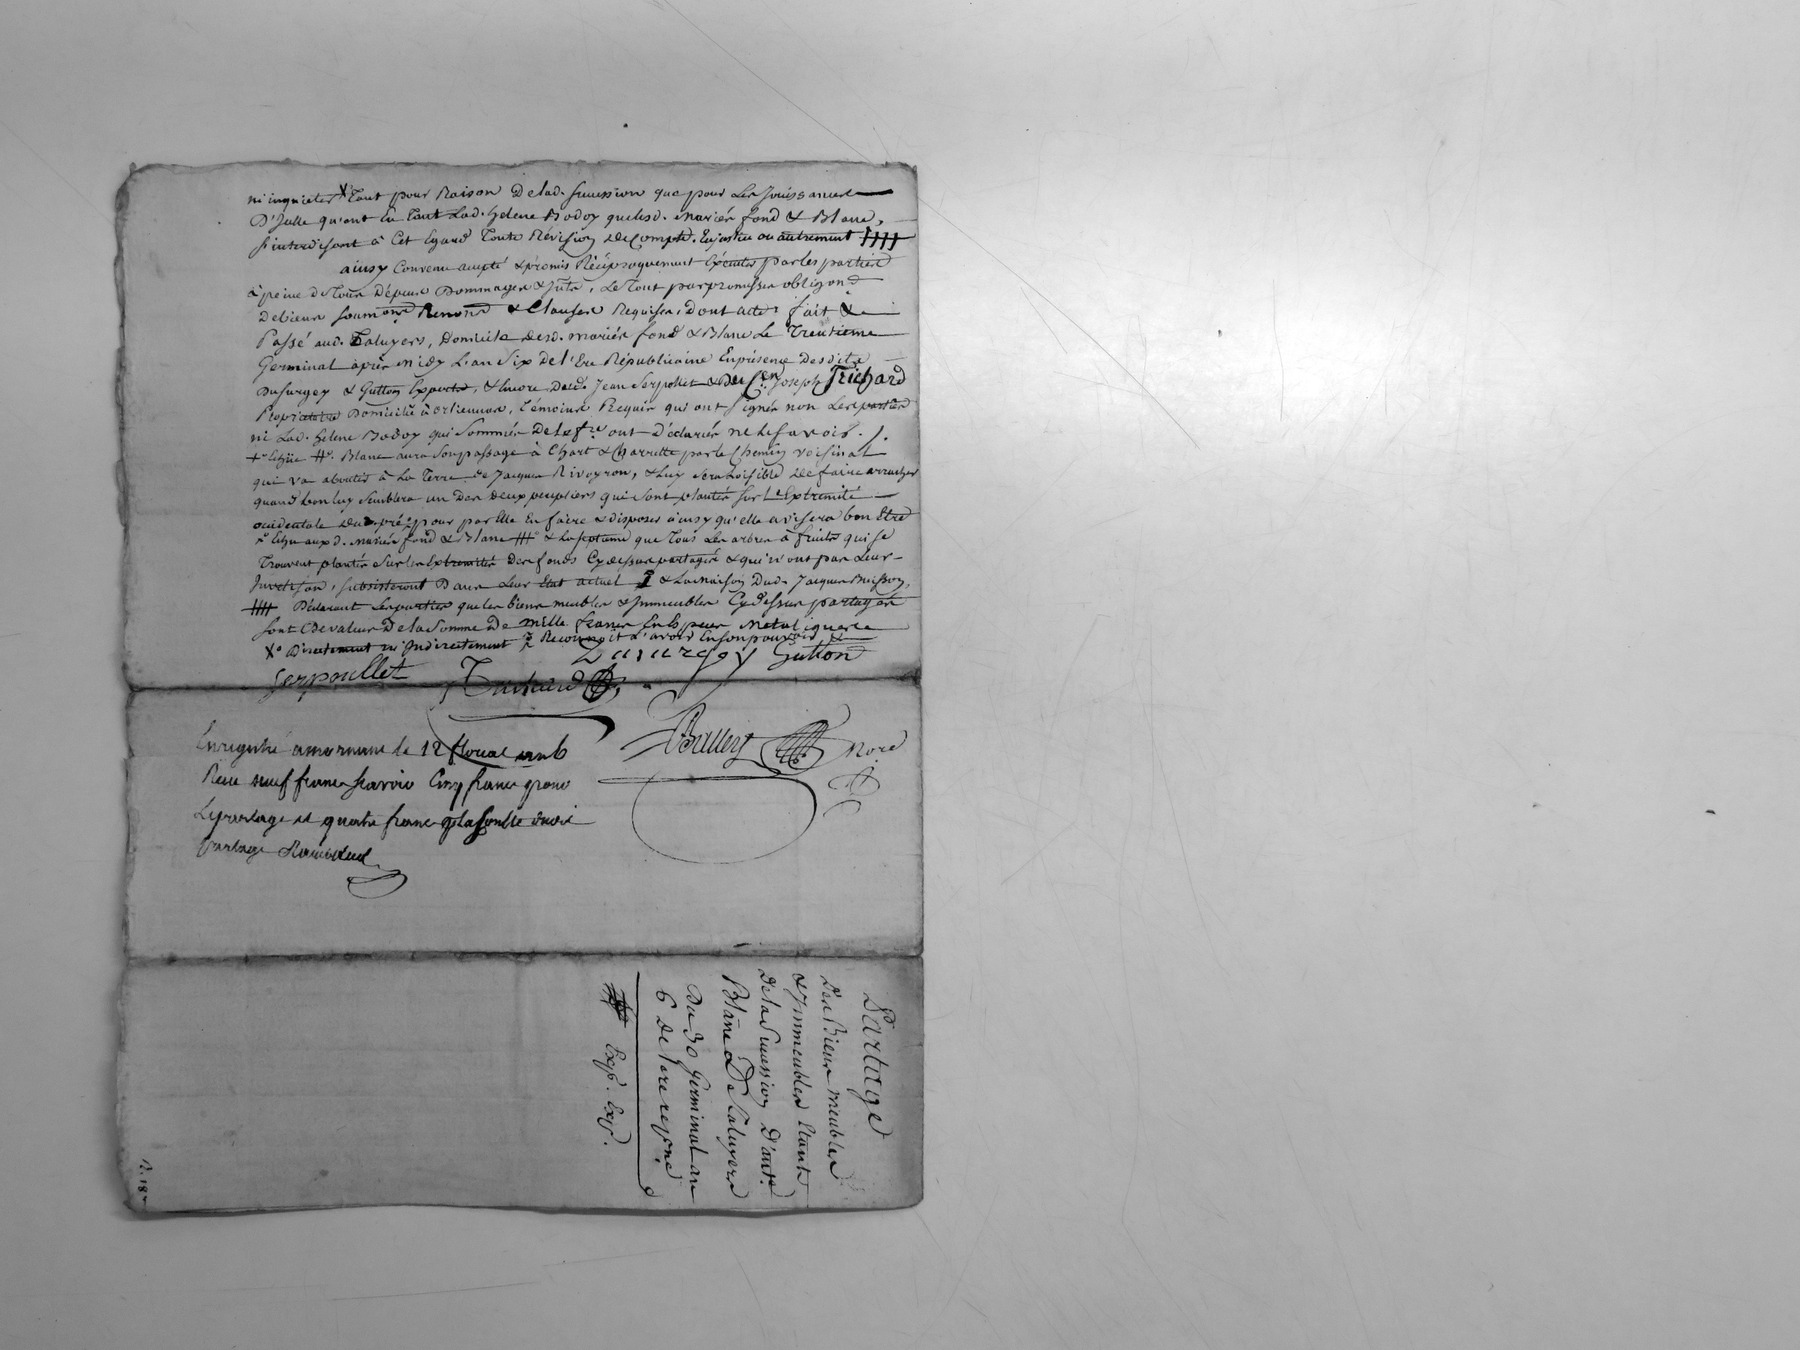 ni inquieter X Tant pour Raison De lad. sucession que pour Les Jouissances
D'Icelle qu'ont eu Tant Lad. helene Bodoy que lesd. mariés fond & Blanc,
s'interdisant à Cet Egard Toute Révision de Compte. En justice ou autrement
ainsy Convenu accepté & promis Réciproquement Exécuter par les parties
à peine de Tous Dépens Dommages & Intts, Le Tout par promesse obligaon
De biens soumons Renons & Clauses Requises, dont acte fait &
Passé aud. Taluyers, Domicile desd. mariés fond & Blanc Le Trentieme
Germinal après midy L'an Six de l'Ere Républicaine En présence Desdits
Dusurgey & Gutton Experts, & Encore Dud. Jean Serpollet & Du Cen Joseph Trichard
Propriétaire Domicilié à orlienas, Témoins Requis qui ont signés non Les parties
ni Lad. helene Bodoy qui sommés De Le fre ont Déclarés ne le savoir.
Blanc aura son passage à Chart & Charrette par le Chemin voisinal
qui va aboutir à La Terre de Jacques Rivoyron, & Luy sera Loisible de faire arracher
quand bon luy semblera un Des deux peupliers qui sont plantés sur L'Extremité
occidentale du pré, pour par Elle En faire & disposer ainsy qu'elle avisera bon Etre
aux d. mariés fond & Blanc & que Tous Les arbres à fruits qui se
Trouvent plantés sur les Extremités Des fonds Cydessus partagés & qui n'ont pas Leur
Subsisteront Dans Leur Etat actuel & La maison Dud. Jacques Buisson,
Déclarant Les parties que les biens meubles & Immeubles Cydessus partagés
sont De valeur De la Somme De mille francs En Espèces Metaliques
Xo Directement ni Indirectement Reconnoit avoir En son pouvoir &
Serpoullet Trichard Dusurgey Gutton
Enregistré a mornant le 12 floreal an 6
Recu neuf francs scavoir Cinq francs pour
Le partage et quatre francs
partage
Nore
Partage
Des Biens meubles
& Immeubles Etants
De la Sucession D'ante
Blanc De Taluyers
Du 30 Germinal an
6 de l'ere
Exp. Exp.